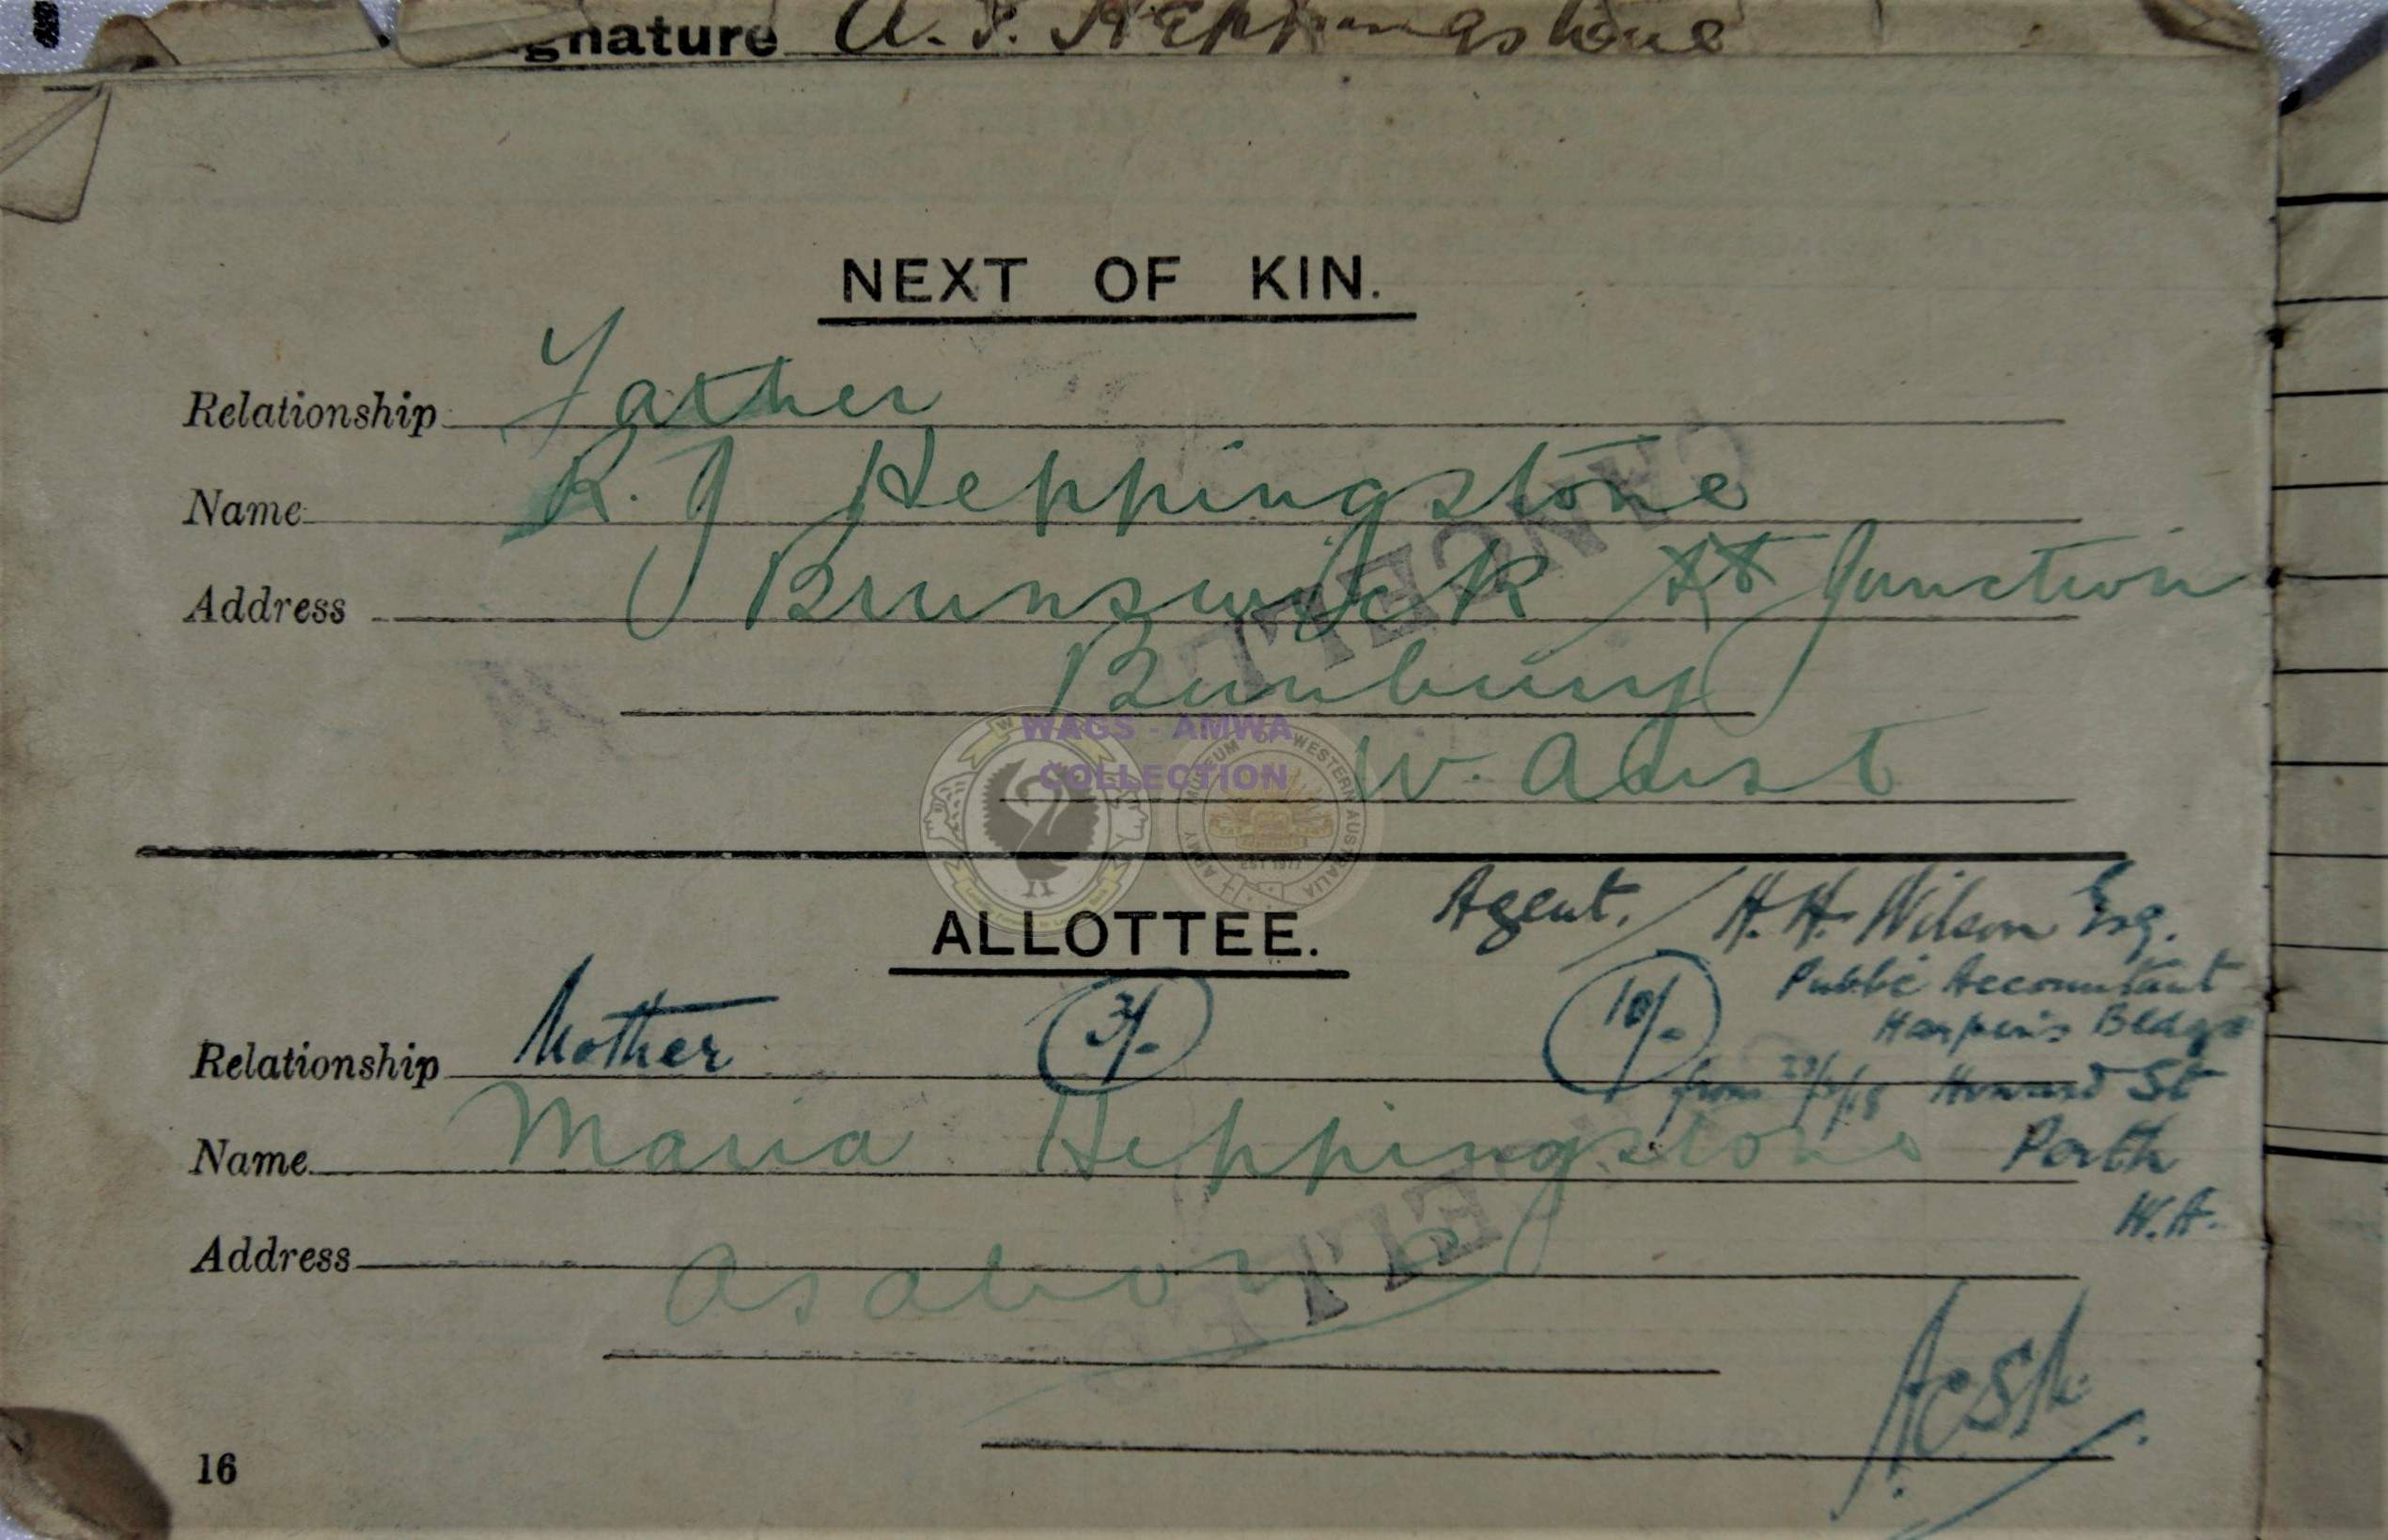 gnature A. J. Heppingstone
NEXT OF KIN.
Relationship Father
Name R. J Heppingstone
Address Brunswick St Junction
Bunbury
W. Aust
CANCELLE
WAGS - AMWA
COLLECTION
MUSEUM OF WESTERN AUSTRALIA
ARMY
EST 1977
Agent. / H. H. Wilson Esq.
ALLOTTEE.
Public Accountant
Relationship Mother 3/- 10/- Harper's Bldgs
from Howard St
Name Maria Heppingstone Perth
W.A.
Address as above
ELLE
16